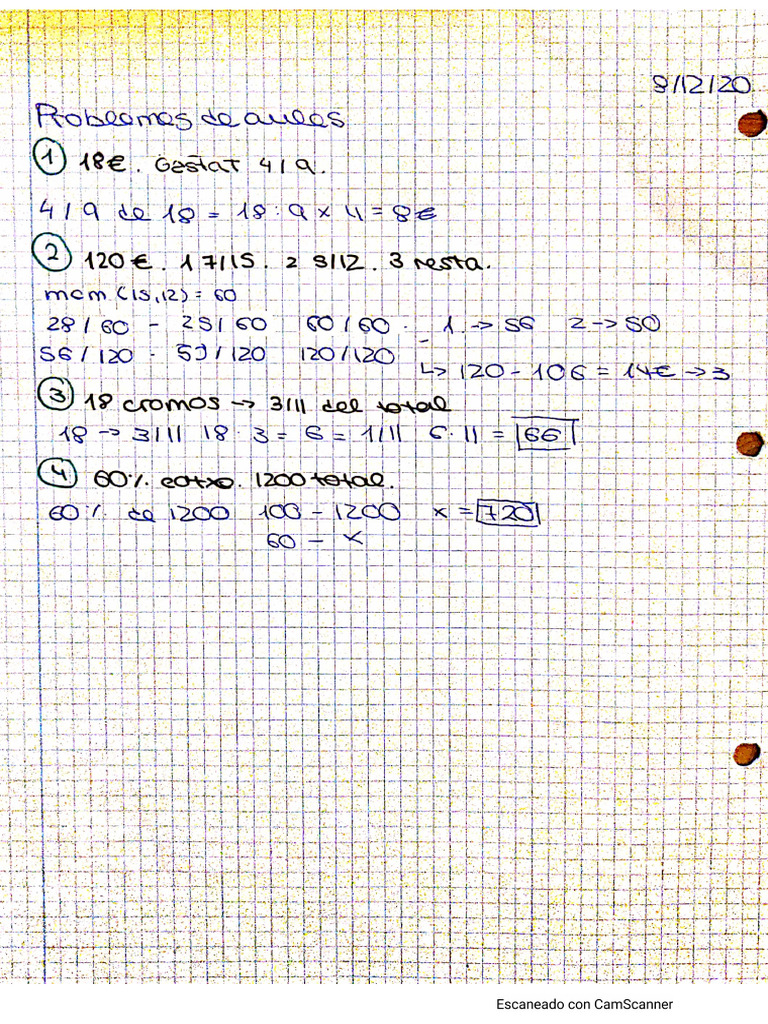 8/12/20
Problemas de aules
1 18€. Gastat 4/9.
4/9 de 18 = 18:9 x 4 = 8€
2 120€. 1 7/15. 2 5/12. 3 resta.
mcm (15,12) = 60
28/60 - 25/60 60/60. - 1. -> 56 2 -> 50
56/120 - 50/120 120/120
↳ 120 - 106 = 14€ -> 3
3 18 cromos -> 3/11 del total
18 -> 3/11 18 · 3 = 6 = 1/11 6 · 11 = 66
4 60% cotxe. 1200 total.
60% de 1200 100 - 1200 x = 720
60 - x
Escaneado con CamScanner